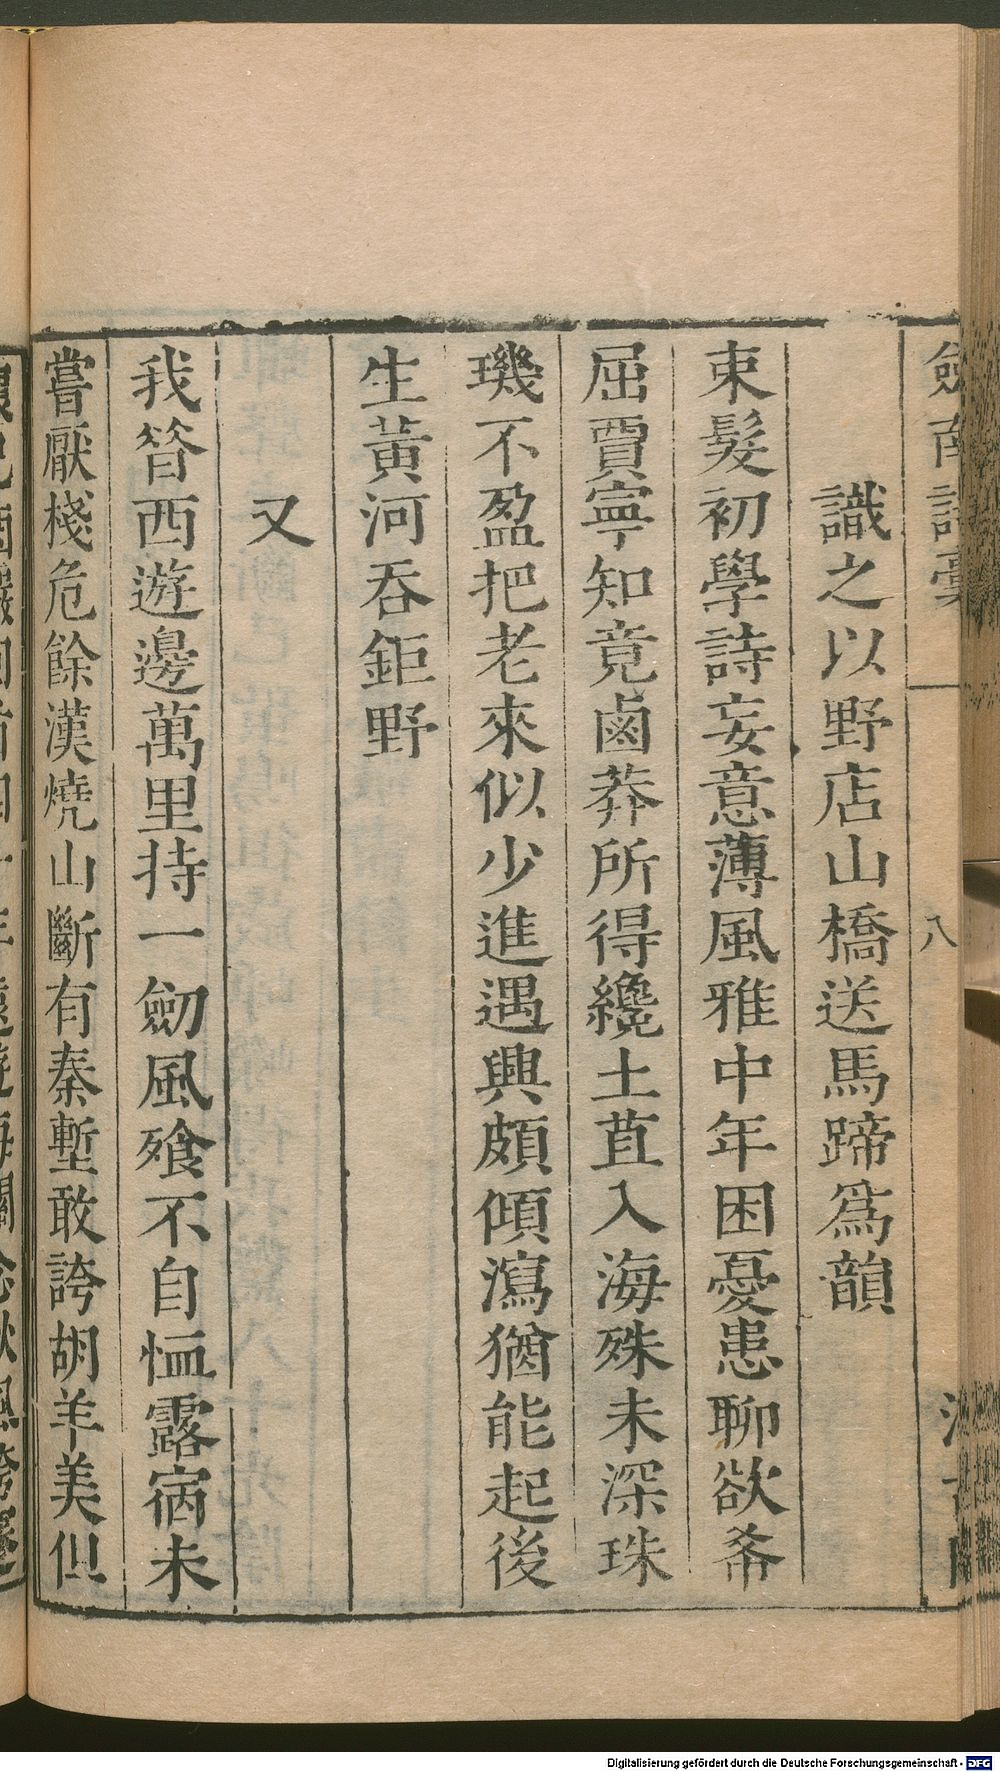 劍南詩稾
八
識之以野店山橋送馬蹄爲韻
束髮初學詩妄意薄風雅中年困憂患聊欲希
屈賈寧知竟鹵莽所得纔土苴入海殊未深珠
璣不盈把老來似少進遇興頗傾瀉猶能起後
生黃河吞鉅野
又
我昝西遊邊萬里持一劒風飱不自恤露宿未
嘗厭棧危餘漢燒山斷有秦塹敢誇胡羊美但
Digitalisierung gefördert durch die Deutsche Forschungsgemeinschaft - DFG